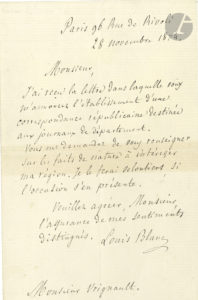 Paris 96 Rue de Rivoli
28 novembre 18
Monsieur,
J'ai reçu la lettre dans laquelle vous
m'annoncez l'établissement d'une
correspondance républicaine destinée
aux journaux de département.
Vous me demandez de vous renseigner
sur les faits de nature à intéresser
ma région. Je le ferai volontiers, si
l'occasion s'en présente.
Veuillez agréer, Monsieur,
l'assurance de mes sentiments
distingués. Louis Blanc
Monsieur Vrignault.
ader